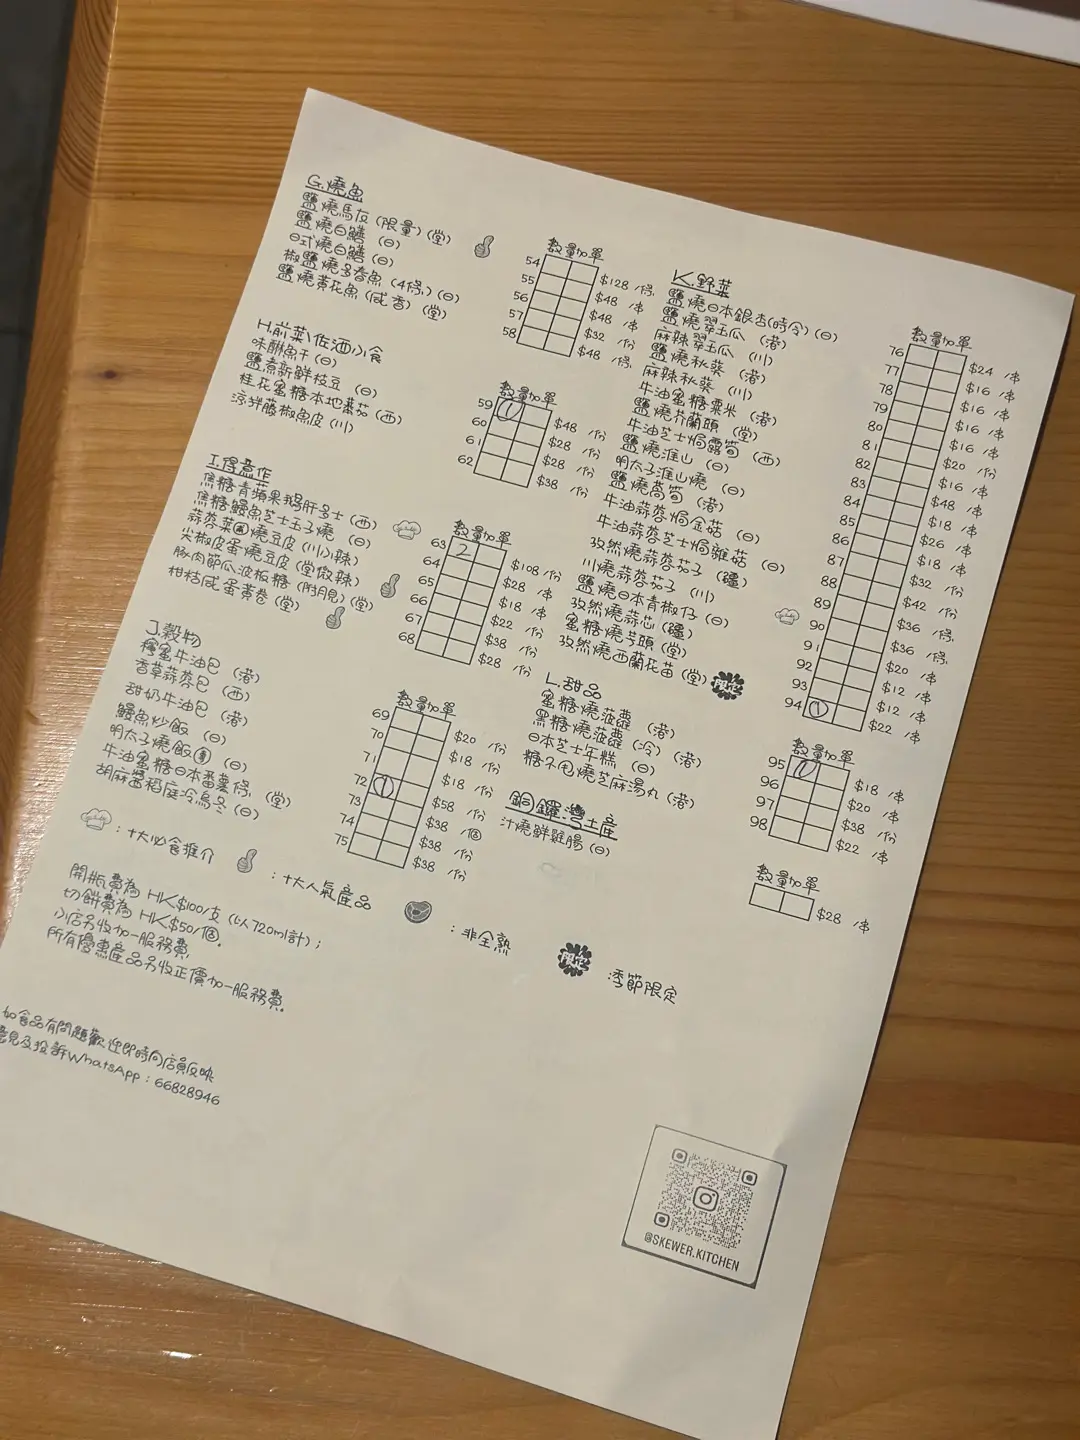 G.燒魚
鹽燒馬友(限量)(堂)
鹽燒白鱔 (日)
日式燒白鱔 (日)
椒鹽燒多春魚(4條)(日)
鹽燒黃花魚(咸香)(堂)
數量加單
54 $128 /條
55 $48 /串
56 $48 /串
57 $32 /份
58 $48 /條
H.前菜\佐酒小食
味醂魚干(日)
鹽煮新鮮枝豆 (日)
桂花蜜糖本地番茄(西)
涼拌藤椒魚皮(川)
數量加單
59 1 $48 /份
60 $28 /份
61 $28 /份
62 $38 /份
I.得意作
焦糖青蘋果鵝肝多士(西)
焦糖鰻魚芝士玉子燒 (日)
蒜蓉菜圃燒豆皮(川小辣)
尖椒皮蛋燒豆皮(堂微辣)
豚肉節瓜波板糖(附月見)(堂)
柑桔咸蛋黃卷(堂)
數量加單
63 2 $108/份
64 $28 /串
65 $18 /串
66 $22 /份
67 $38 /串
68 $28 /份
J.穀物
檸蜜牛油包 (港)
香草蒜蓉包 (西)
甜奶牛油包 (港)
鰻魚炒飯 (日)
明太子燒飯 (日)
牛油蜜糖日本番薯條 (堂)
胡麻醬稻庭冷烏冬(日)
數量加單
69 $20 /份
70 $18 /份
71 $18 /份
72 1 $58 /份
73 $38 /個
74 $38 /份
75 $38 /份
K.野菜
鹽燒日本銀杏(時令)(日)
鹽燒翠玉瓜 (港)
麻辣翠玉瓜 (川)
鹽燒秋葵 (港)
麻辣秋葵 (川)
牛油蜜糖粟米 (港)
鹽燒芥蘭頭 (堂)
牛油芝士焗露筍 (西)
鹽燒淮山 (日)
明太子淮山燒 (日)
鹽燒萵筍 (港)
牛油蒜蓉焗金菇 (日)
牛油蒜蓉芝士焗雜菇 (日)
孜然燒蒜蓉茄子 (疆)
川燒蒜蓉茄子 (川)
鹽燒日本青椒仔(日)
孜然燒蒜芯(疆)
蜜糖燒芋頭(堂)
孜然燒西蘭花苗(堂) 限定
數量加單
76 $24 /串
77 $16 /串
78 $16 /串
79 $16 /串
80 $16 /串
81 $20 /份
82 $16 /串
83 $48 /串
84 $18 /串
85 $26 /串
86 $18 /串
87 $32 /份
88 $42 /份
89 $36 /條
90 $36 /條
91 $20 /串
92 $12 /串
93 $12 /串
94 1 $22 /串
L.甜品
蜜糖燒菠蘿 (港)
黑糖燒菠蘿 (冷) (港)
日本芝士年糕 (日)
糖不甩燒芝麻湯丸(港)
數量加單
95 1 $18 /串
96 $20 /串
97 $38 /份
98 $22 /串
銅鑼灣土産
汁燒鮮雞腸(日)
數量加單
$28 /串
:十大必食推介
:十大人氣產品
:非全熟
限定 :季節限定
開瓶費為 HK$100/支(以720ml計);
切餅費為 HK$50/個.
小店另收加一服務費
所有優惠產品另收正價加一服務費
如食品有問題歡迎即時向店員反映
意見及投訴WhatsApp:66828946
@SKEWER.KITCHEN